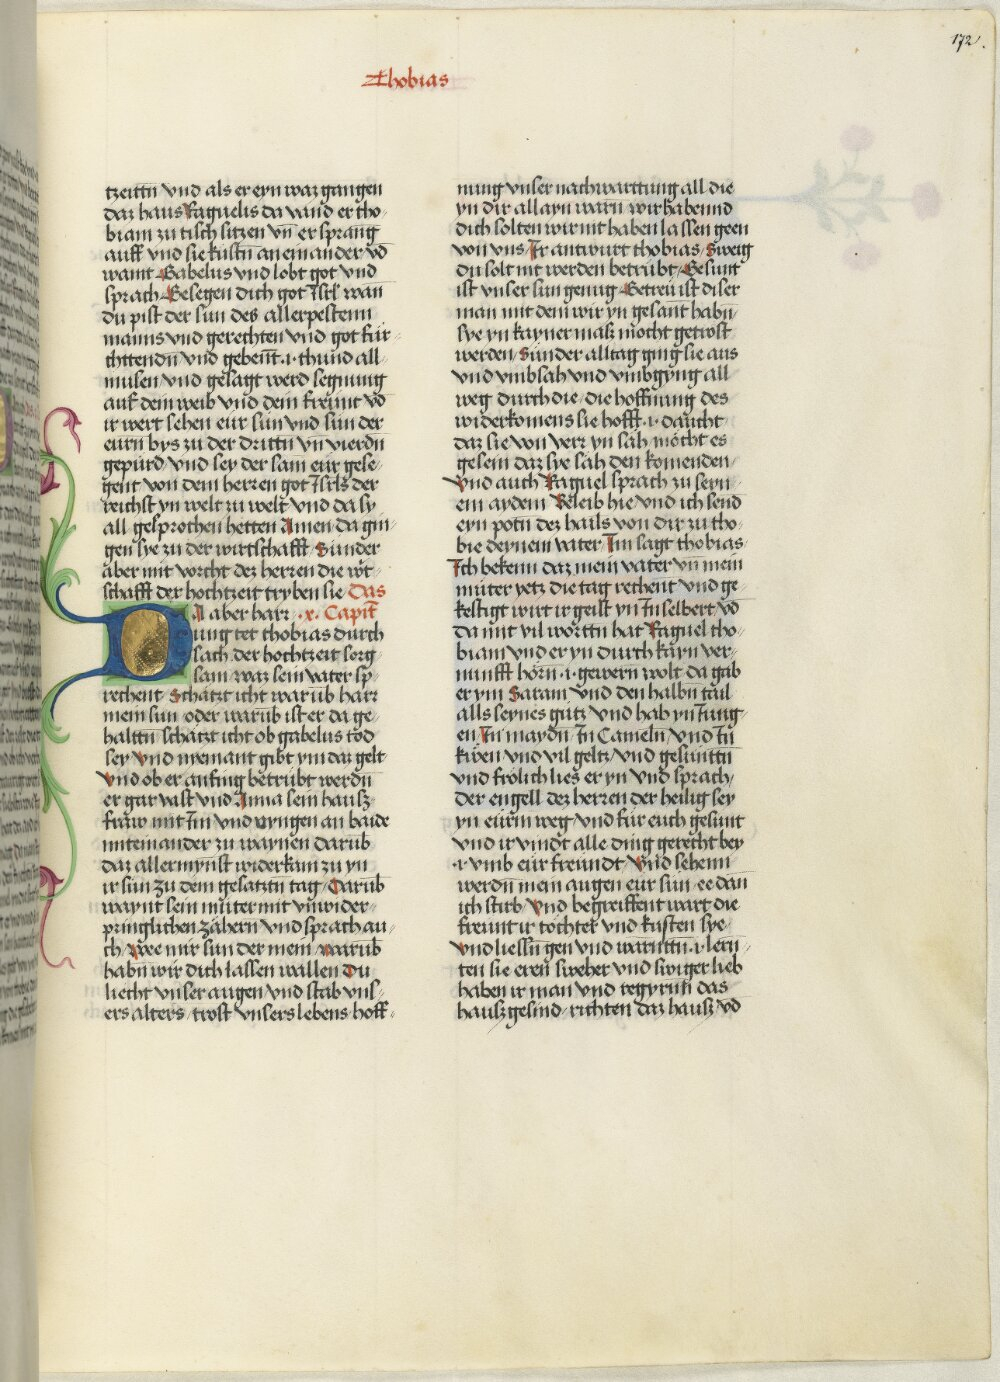 172.
Thobias
tzeittn vnd als er eyn waz gangen
daz haus Raguelis da vand er tho
biam zu tisch sitzen vn̄ er sprang
auff vnd sie kustn̄ an einander vō
waint Gabelus vnd lobt got vnd
sprach Gesegen dich got Isrl̄ wan
du pist der sun des allerpestenn
manns vnd gerechten vnd got für
chttendn̄ vnd gebenn̄t .i. thund all
musen vnd gesagt werd segnung
auf dein weib vnd dein freunt vō
ir wert sehen eur sun vnd sun der
eurn bys zu der drittn̄ vn̄ vierdn̄
gepurd vnd sey der sam eur gese
gent von dem herren got Isrls̄ der
reichst yn welt zu welt vnd da sy
all gesprochen hetten Amen da gin
gen sye zu der wirtschafft Sunder
aber mit vorcht dez herren die wt̄
schafft der hochtzeit tryben sie Das
.x. Capit̄
DA aber harr
ung tet thobias durch
sach der hochtzeit sorg
sam waz sein vater sp
rechent Schatzt icht warūb harr
mein sun oder warūb ist er da ge
haltn̄ schatzt icht ob gabelus tod
sey vnd nyemant gibt ym daz gelt
vnd ob er anfing betrubt werdn̄
er gar vast vnd Anna sein hausz
fraw mit Im vnd vyngen an baide
miteinander zu waynen darūb
daz allermynst widerkam zu yn
ir sun zu dem gesatztn tag Darūb
waynt sein muter mit vnwider
pringlichen zähern vnd sprach au
ch Wee mir sun der mein warūb
habn̄ wir dich lassen wallen Du
liecht vnser augen vnd stab vns
ers alters trost vnsers lebens hoff
nung vnser nachwarttung all die
yn dir allayn warn wir habennd
dich solten wir nit haben lassen geen
von vns Ir antwurt thobias Sweig
du solt nit werden betrubt Gesunt
ist vnser sun genug Getreu ist diser
man mit dem wir yn gesant habn̄
Sye yn kayner masz mocht getrost
werden Sunder alltag ging sie aus
vnd vmbsah vnd vmbgyng all
weg durch die die hoffnung des
widerkomens sie hofft .i. daucht
daz sie von verr yn sah mocht es
gesein daz sye sah den komenden
vnd auch Raguel sprach zu seyn
em aydem Beleib hie vnd ich send
eyn potn̄ dez hails von dir zu tho
bie deynem vater Im sagt thobias
Ich bekenn daz mein vater vn̄ mein
muter yetz die tag rechent vnd ge
kestigt wirt ir geist yn In selbert vō
da mit vil worttn̄ hat Raguel tho
biam vnd er yn durch kayn ver
nunfft horn̄ .i. gewern wolt da gab
er ym Saram vnd den halbn̄ tail
alls seynes gutz vnd hab yn Iung
en In maydn̄ In Cameln vnd In
kwen vnd vil geltz vnd gesunttn̄
vnd frolich lies er yn vnd sprach
der engell dez herren der heilig sey
yn eurm weg vnd fur euch gesunt
vnd ir vindt alle ding gerecht bey
.i. vmb eur freundt vnd sehenn
werdn̄ mein augen eur sun ee dan
ich stirb vnd begreiffent wart die
freunt ir tochter vnd kusten sye
vnd liessn gen vnd warnttn̄ .i. lern
ten sie eren sweher vnd swiger lieb
haben ir man vnd regyrnn das
hausz gesind richten daz hausz vō